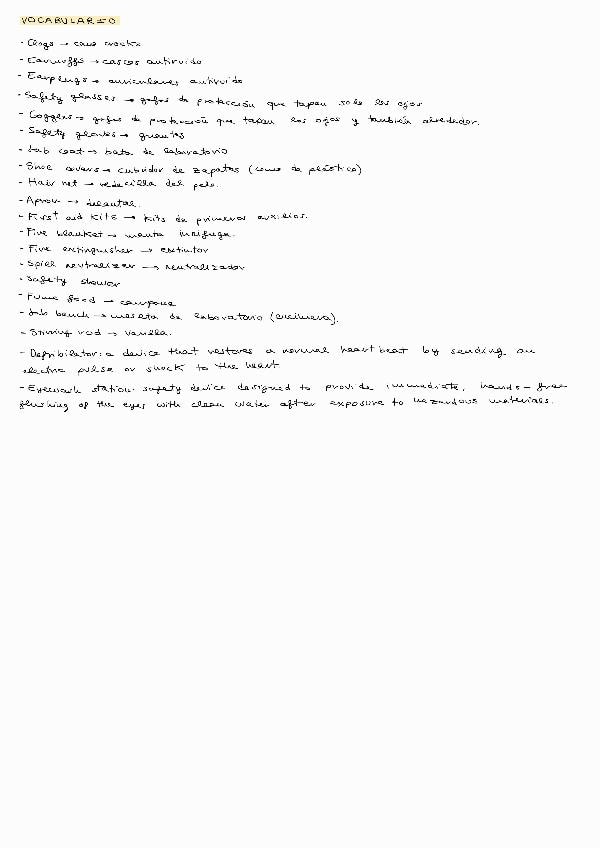 VOCABULARIO
- Clogs → como crocks
- Earmuffs → cascos antiruido
- Earplugs → auriculares antiruido
- Safety glasses → gafas de protección que tapan solo los ojos
- Goggles → gafas de protección que tapan los ojos y también alrededor.
- Safety gloves → guantes
- Lab coat → bata de laboratorio
- Shoe covers → cubridor de zapatos (como de plástico)
- Hair net → redecilla del pelo.
- Apron → delantal.
- First aid kits → kits de primeros auxilios.
- Fire blanket → manta inifuga.
- Fire extinguisher → extintor
- Spiel neutralizer → neutralizador
- Safety shower
- Fume food → campana
- Lab bench → meseta de laboratorio (encimera).
- Stirring rod → varilla.
- Defribilator: a device that restores a normal heartbeat by sending an
electric pulse or shock to the heart
- Eyewash station: safety device designed to provide immediate, hands-free
flushing of the eyes with clean water after exposure to hazardous materials.